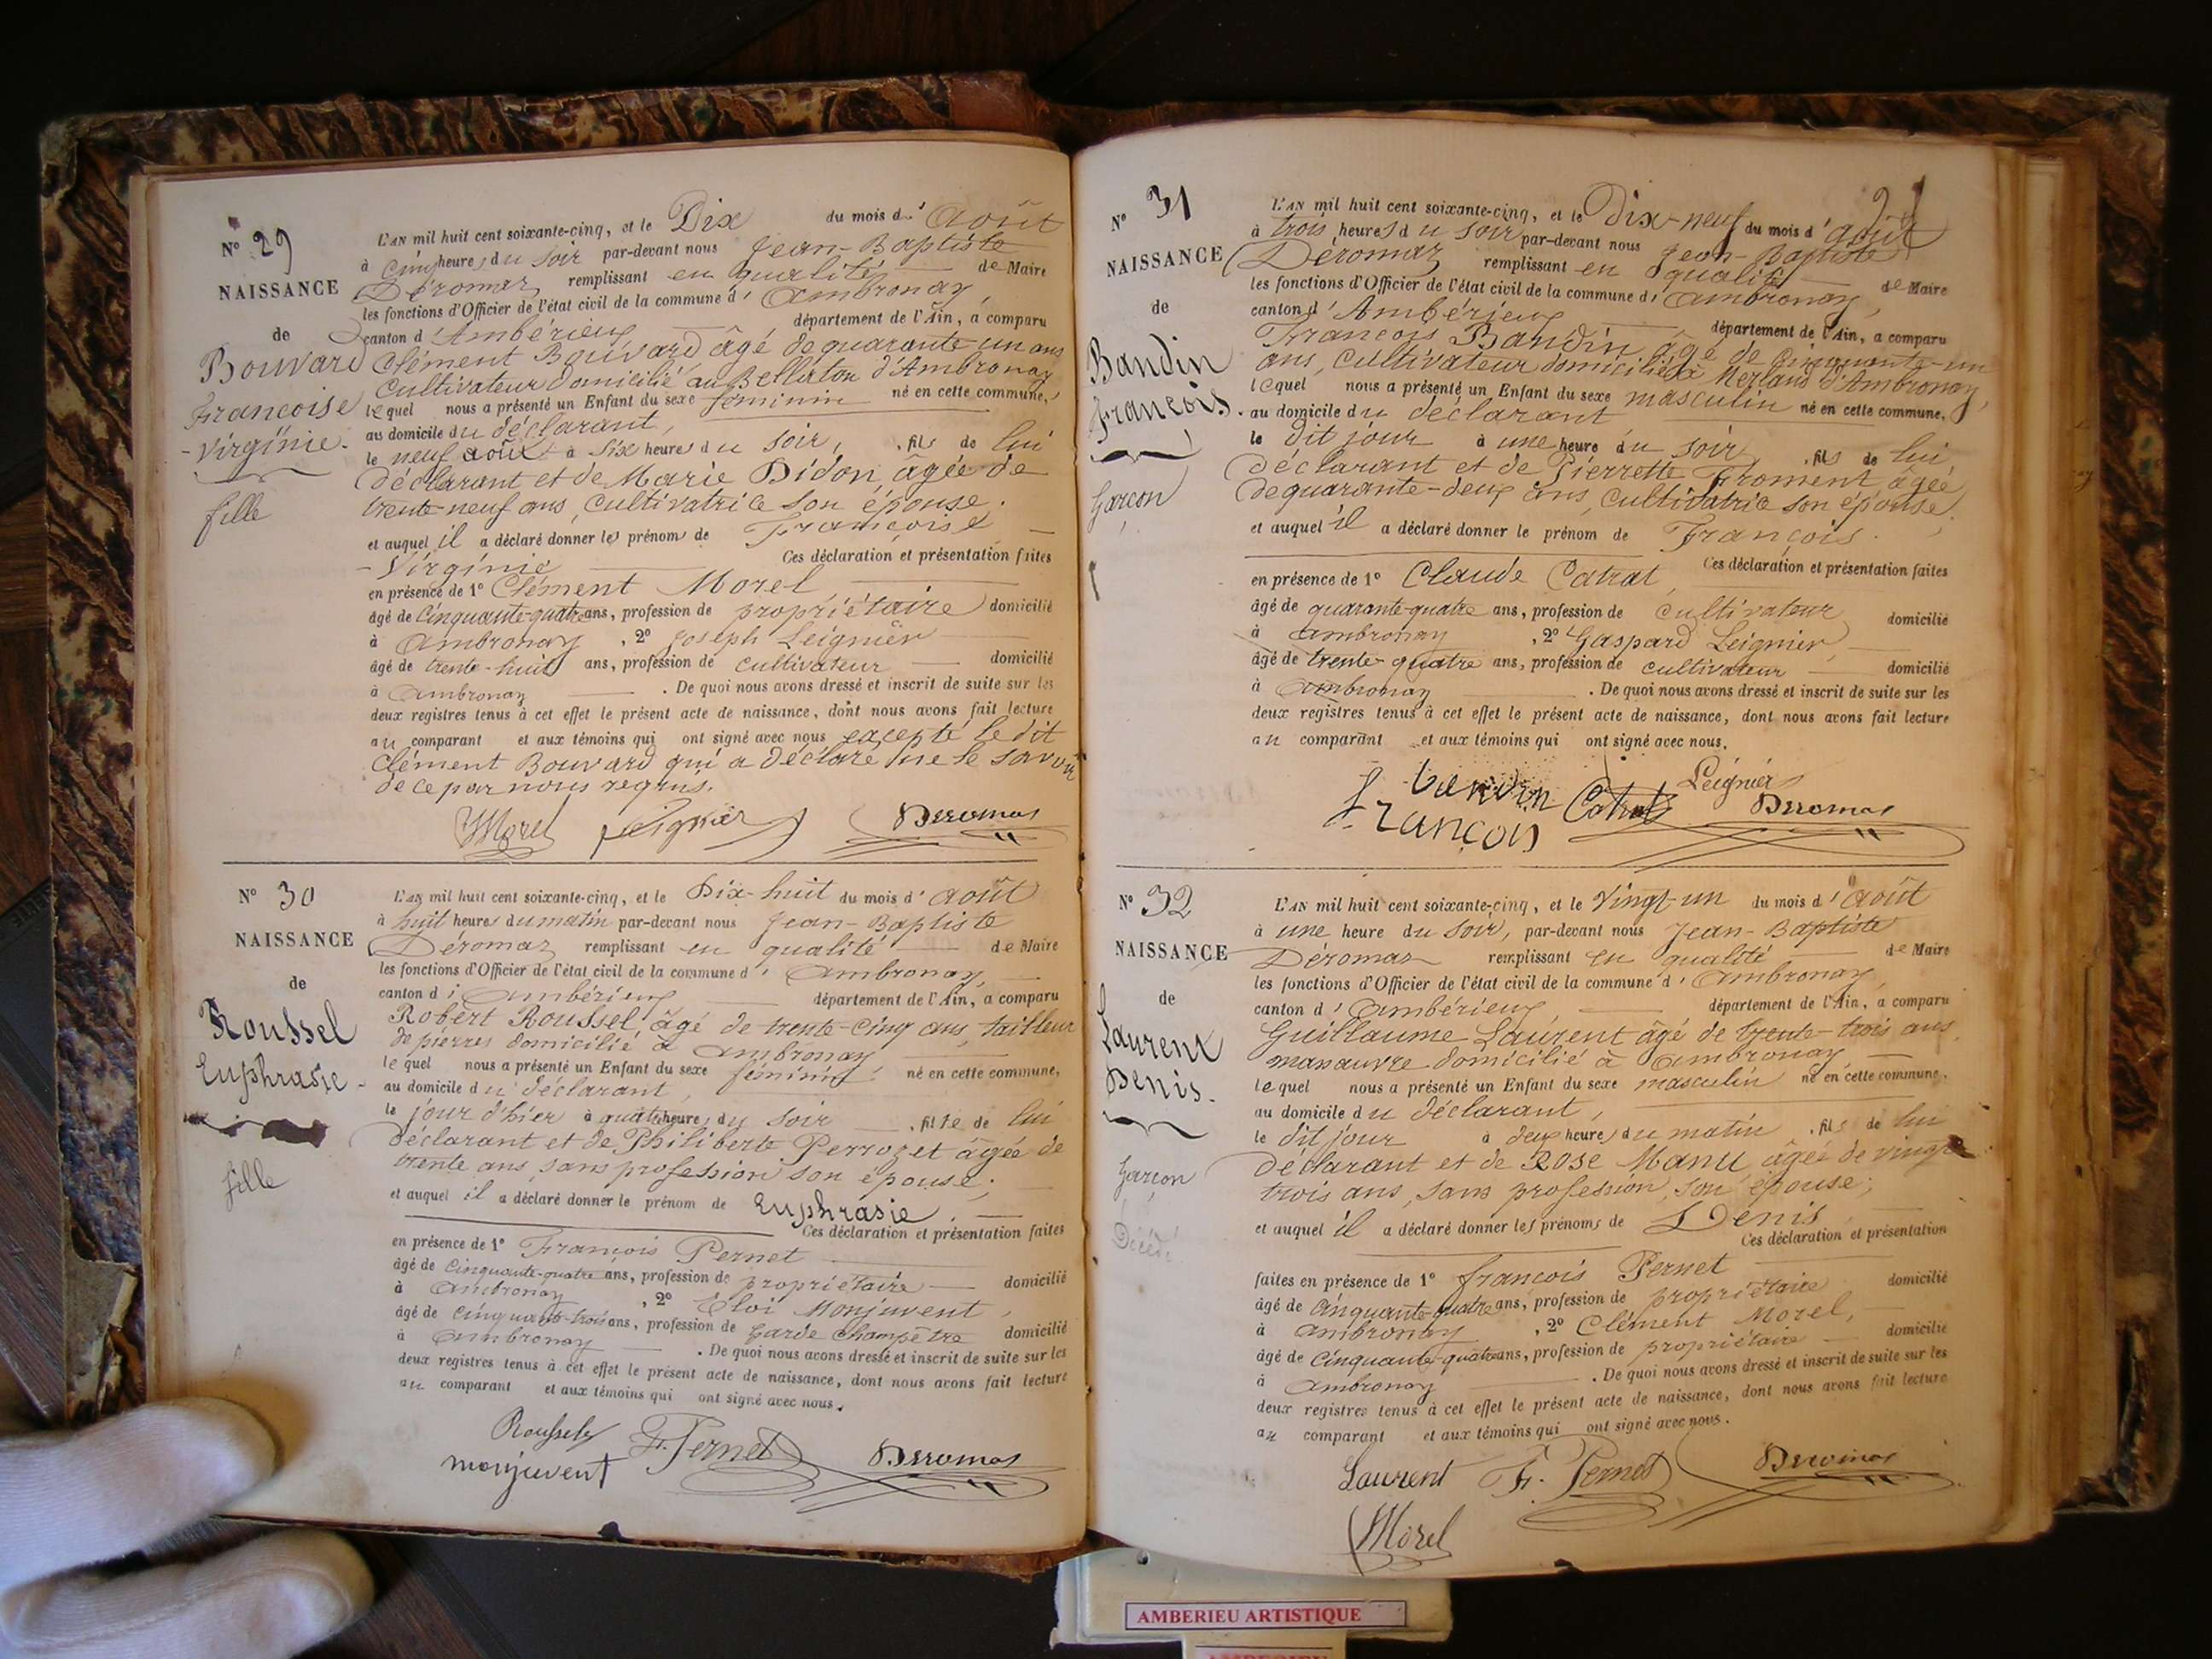 Nº 29
NAISSANCE
de
Bouvard
Françoise
-Virginie.
fille
L'AN mil huit cent soixante-cinq, et le Dix du mois d'août
à cinq heures du soir par-devant nous Jean-Baptiste
Déromas remplissant en qualité de Maire
les fonctions d'Officier de l'état civil de la commune d'Ambronay,
canton d'Ambérieux département de l'Ain, a comparu
Clément Bouvard âgé de quarante-un ans
cultivateur domicilié au d'Ambronay
lequel nous a présenté un Enfant du sexe féminin né en cette commune,
au domicile du déclarant,
le neuf août à six heures du soir, fils de lui
déclarant et de Marie Didon âgée de
trente-neuf ans, cultivatrice son épouse.
et auquel il a déclaré donner les prénoms de Françoise
-Virginie Ces déclaration et présentation faites
en présence de 1º Clément Morel
âgé de cinquante-quatre ans, profession de propriétaire domicilié
à Ambronay, 2º Joseph Leignier
âgé de trente-huit ans, profession de cultivateur domicilié
à Ambronay. De quoi nous avons dressé et inscrit de suite sur les
deux registres tenus à cet effet le présent acte de naissance, dont nous avons fait lecture
au comparant et aux témoins qui ont signé avec nous excepté le dit
Clément Bouvard qui a déclaré ne le savoir
de ce par nous requis.
Morel Leignier Deromas
Nº 30
NAISSANCE
de
Roussel
Euphrasie
fille
L'AN mil huit cent soixante-cinq, et le Dix-huit du mois d'août
à huit heures du matin par-devant nous Jean-Baptiste
Déromas remplissant en qualité de Maire
les fonctions d'Officier de l'état civil de la commune d'Ambronay,
canton d'Ambérieux département de l'Ain, a comparu
Robert Roussel, âgé de trente-cinq ans, tailleur
de pierres domicilié à Ambronay
lequel nous a présenté un Enfant du sexe féminin né en cette commune,
au domicile du déclarant,
le jour d'hier à quatre heures du soir, fille de lui
déclarant et de Philiberte Perrozet âgée de
trente ans, sans profession son épouse;
et auquel il a déclaré donner le prénom de Euphrasie.
Ces déclaration et présentation faites
en présence de 1º François Pernet
âgé de cinquante-quatre ans, profession de propriétaire domicilié
à Ambronay, 2º Eloi Monjuvent,
âgé de cinquante-trois ans, profession de Garde Champêtre domicilié
à Ambronay. De quoi nous avons dressé et inscrit de suite sur les
deux registres tenus à cet effet le présent acte de naissance, dont nous avons fait lecture
au comparant et aux témoins qui ont signé avec nous.
Roussel F. Pernet Deromas
monjuvent
Nº 31
NAISSANCE
de
Bandin
François.
Garçon
L'AN mil huit cent soixante-cinq, et le Dix-neuf du mois d'août
à trois heures du soir par-devant nous Jean-Baptiste
Déromas remplissant en qualité de Maire
les fonctions d'Officier de l'état civil de la commune d'Ambronay,
canton d'Ambérieux département de l'Ain, a comparu
François Bandin âgé de cinquante-un
ans, cultivateur domicilié à Merland d'Ambronay,
lequel nous a présenté un Enfant du sexe masculin né en cette commune,
au domicile du déclarant
le dit jour à une heure du soir, fils de lui
déclarant et de Pierrette Froment âgée
de quarante-deux ans, cultivatrice son épouse,
et auquel il a déclaré donner le prénom de François.
Ces déclaration et présentation faites
en présence de 1º Claude Catrat,
âgé de quarante-quatre ans, profession de cultivateur domicilié
à Ambronay, 2º Gaspard Leignier,
âgé de trente-quatre ans, profession de cultivateur domicilié
à Ambronay. De quoi nous avons dressé et inscrit de suite sur les
deux registres tenus à cet effet le présent acte de naissance, dont nous avons fait lecture
au comparant et aux témoins qui ont signé avec nous.
bandin Catrat Leignier
françois Deromas
Nº 32
NAISSANCE
de
Laurent
Denis.
Garçon
Décédé
L'AN mil huit cent soixante-cinq, et le Vingt-un du mois d'août
à une heure du soir, par-devant nous Jean-Baptiste
Déromas remplissant en qualité de Maire
les fonctions d'Officier de l'état civil de la commune d'Ambronay,
canton d'Ambérieux département de l'Ain, a comparu
Guillaume Laurent âgé de trente-trois ans
manœuvre domicilié à Ambronay,
lequel nous a présenté un Enfant du sexe masculin né en cette commune,
au domicile du déclarant,
le dit jour à deux heures du matin, fils de lui
déclarant et de Rose Manu âgée de vingt
trois ans, sans profession, son épouse;
et auquel il a déclaré donner les prénoms de Denis
Ces déclaration et présentation
faites en présence de 1º François Pernet
âgé de cinquante-quatre ans, profession de propriétaire domicilié
à Ambronay, 2º Clément Morel,
âgé de cinquante-quatre ans, profession de propriétaire domicilié
à Ambronay. De quoi nous avons dressé et inscrit de suite sur les
deux registres tenus à cet effet le présent acte de naissance, dont nous avons fait lecture
au comparant et aux témoins qui ont signé avec nous.
Laurent F. Pernet Deromas
Morel
AMBERIEU ARTISTIQUE